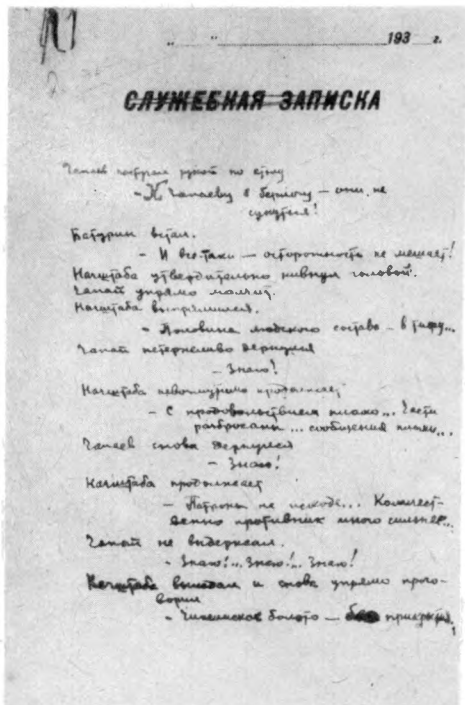 " " 193 г.
СЛУЖЕБНАЯ ЗАПИСКА
Чапаев рукой по столу
- К Чапаеву в берлогу — они не
сунутся!
Батурин встал.
- И все-таки — осторожность не мешает!
Начштаба утвердительно кивнул головой.
Чапай упрямо молчит.
Начштаба выпрямился.
- Половина людского состава — в тифу...
Чапай нетерпеливо дернулся
- Знаю!
Начштаба невозмутимо продолжает
- С продовольствием плохо... Части
разбросаны... сообщения плохи...
Чапаев снова дернулся
- Знаю!
Начштаба продолжает
- Патроны на исходе... Количест-
венно противник много сильнее...
Чапай не выдержал.
- Знаю!.. Знаю!.. Знаю!
Начштаба и снова упрямо прого-
ворил
- болото —